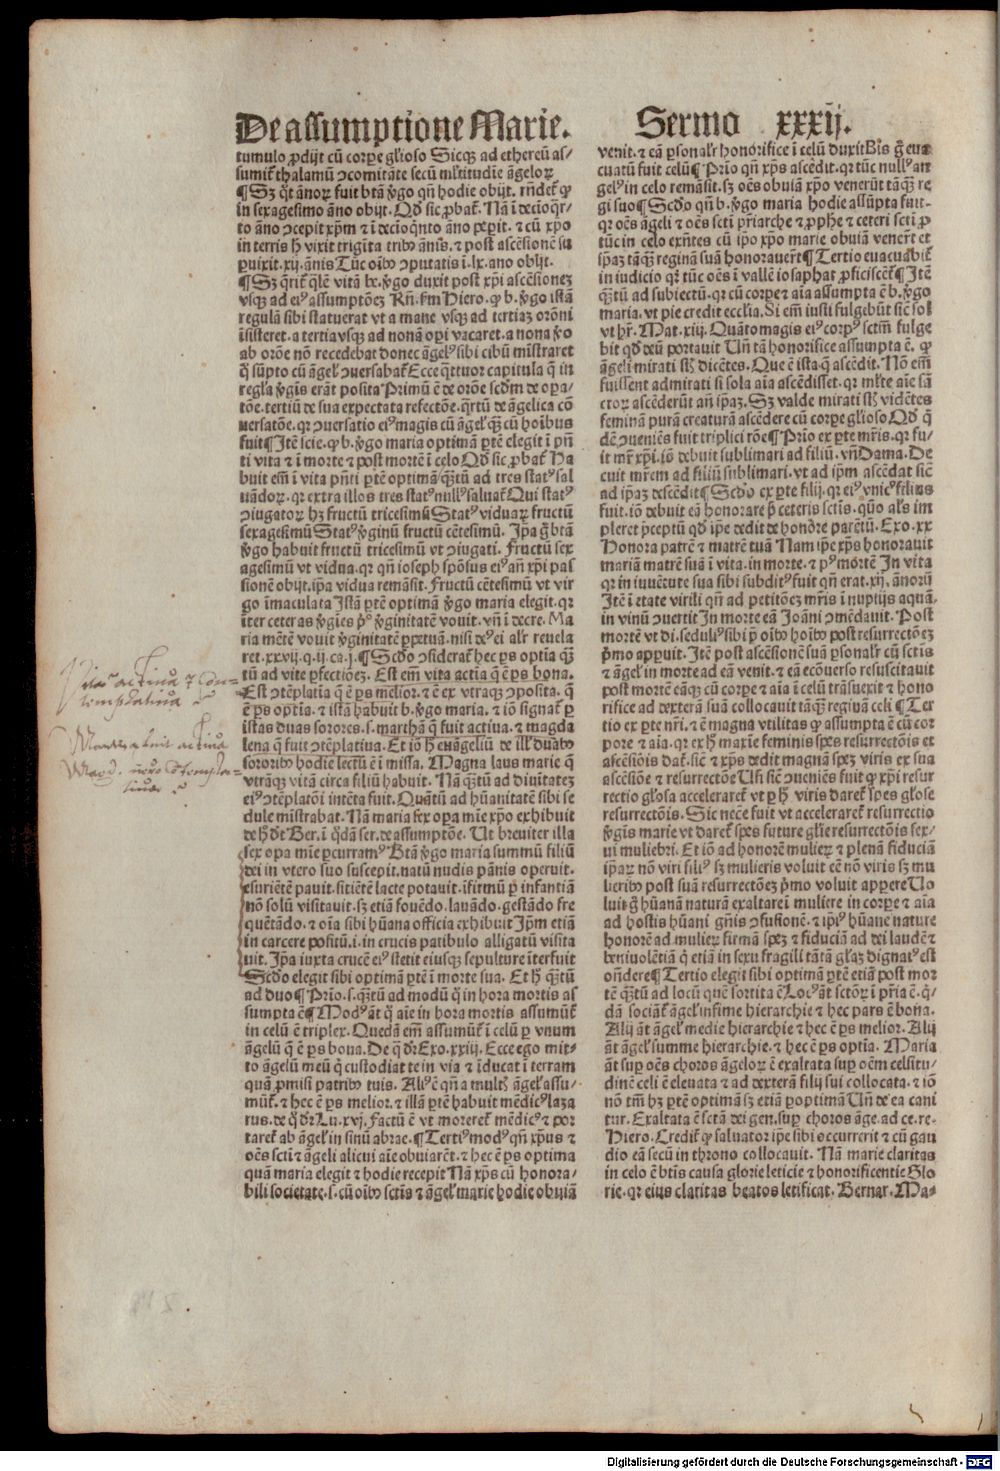 De assumptione Marie.
Sermo xxxij.
tumulo ꝓdijt cū corꝑe gl̄ioso Sicqꝫ ad ethereū as⸗
sumit᷑ thalamū ꝯcomitāte secū ml̄titudīe āgeloꝝ
¶ Sꝫ q̄t ānoꝝ fuit btā v̄go qn̄ hodie obijt. rn̄det᷑ ꝙ
in sexagesimo āno obijt. Qd̄ sic ꝓbat᷑. Nā ī decīoq̄r⸗
to āno ꝯcepit xp̄m ⁊ ī decīoqͥnto āno peꝑit. ⁊ cū xp̄o
in terris h̄ vixit triginta tribꝰ ānis. ⁊ post ascēsionē su
ꝑuixit. xij. ānis Tūc oībꝰ ꝯputatis ī. lx. ano obijt.
¶ Sꝫ q̄rit᷑ q̄lē vitā bt̄. v̄go duxit post xp̄i ascēsionez
vsqꝫ ad eiꝰ assumptōeꝫ Rn̄. fm Hiero. ꝙ b. v̄go istā
regulā sibi statuerat vt a mane vsqꝫ ad tertiaꝫ orōni
īsisteret. a tertia vsqꝫ ad nonā oꝑi vacaret. a nona v̄o
ab orōe nō recedebat donec āgelꝰ sibi cibū mīstraret
q̄ sūpto cū āgel᷑ ꝯuersabat᷑ Ecce qͣttuor capitula q̄ in
regl̄a v̄gīs erāt posita Primū ē de orōe scd̄m de oꝑa⸗
tōe. tertiū de sua expectata refectōe. qͣrtū de āgelica cō
uersatōe. qꝛ ꝯuersatio eiꝰ magis cū āgel᷑ qꝫ cū hoībus
fuit ¶ Itē scie. ꝙ b. v̄go maria optimā ꝑtē elegit ī pn̄
ti vita ⁊ ī morte ⁊ post mortē ī celo Qd̄ sic ꝓbat᷑ Ha
buit em̄ ī vita pn̄ti ꝑtē optimā q̄ꝫtū ad tres statꝰ sal
uādoꝝ. qꝛ extra illos tres statꝰ nullꝰ saluat᷑ Qui statꝰ
ꝯiugatoꝝ hꝫ fructū tricesimū Statꝰ viduaꝝ fructū
sexagesimū Statꝰ v̄ginū fructū cētesimū. Ip̄a g̊ btā
v̄go habuit fructū tricesimū vt ꝯiugati. Fructū sex
agesimū vt vidua. qꝛ qn̄ ioseph spōsus eiꝰ an̄ xp̄i pas
sionē obijt. ip̄a vidua remāsit. Fructū cētesimū vt vir
go īmaculata Istā ꝑtē optimā v̄go maria elegit. qꝛ
īter ceteras v̄gīes pͥꝰ v̄ginitatē vouit. vn̄ ī decre. Ma
ria mētē vouit v̄ginitatē ꝑpetuā. nisi deꝰ ei alr̄ reuela
ret. xxvij. q. ij. ca. j. ¶ Scd̄o ꝯsiderat᷑ hec ꝑs optīa q̄ꝫ
tū ad vite ꝑfectiōeꝫ. Est em̄ vita actīa q̄ ē ꝑs bona.
Est ꝯtēplatīa q̄ ē ꝑs mēlior. ⁊ ē ex vtraqꝫ ꝯposita. q̄
ē ꝑs optīa. ⁊ istā habuit b. v̄go maria. ⁊ iō signat᷑ ꝑ
istas duas sorores. s. marthā q̄ fuit actiua. ⁊ magda
lena q̄ fuit ꝯtēplatiua. Et iō h̄ euāgeliū de ill᷑ duabꝰ
sororibꝰ hodie lectū ē ī missa. Magna laus marie q̄
vtrāqꝫ vitā circa filiū habuit. Nā q̄ꝫtū ad diuitateꝫ
eiꝰ ꝯtēplatōi intēta fuit. Quātū ad hūanitatē sibi se
dule mīstrabat. Nā maria sex oꝑa mīe xp̄o exhibuit
de h̄ dt̄ Ber. ī q̄dā ser. de assumptōe. Ut breuiter illa
sex oꝑa mīe ꝑcurramꝰ Btā v̄go maria summū filiū
dei in vtero suo suscepit. natū nudis pānis operuit.
esuriētē pauit. sitiētē lacte potauit. īfirmū ꝑ infantiā
nō solū visitauit. sꝫ etiā fouēdo. lauādo. gestādo fre
quētādo. ⁊ oīa sibi hūana officia exhibuit Ip̄m etiā
in carcere positū. i. in crucis patibulo alligatū visita
uit. Ip̄a iuxta crucē eiꝰ stetit eiusqꝫ sepulture īterfuit
Scd̄o elegit sibi optimā ꝑtē ī morte sua. Et h̄ q̄ꝫtū
ad duo ¶ Prīo. s. q̄ꝫtū ad modū q̄ in hora mortis as
sumpta ē ¶ Modꝰ āt q̄ aīe in hora mortis assumūt᷑
in celū ē triplex. Quedā em̄ assumūt᷑ ī celū ꝑ vnum
āgelū q̄ ē ꝑs bona. De q̄ dr̄ Exo. xxiij. Ecce ego mit⸗
to āgelū meū q̄ custodiat te in via ⁊ īducat ī terram
quā ꝓmisi patribꝰ tuis. Aliꝰ ē qn̄ a mult᷑ āgel᷑ assu⸗
mūt᷑. ⁊ hec ē ꝑs melior. ⁊ illā ꝑtē habuit mēdicꝰ laza
rus. de q̄ dr̄ Lu. xvj. Factū ē vt moreret᷑ mēdicꝰ ⁊ por
taret᷑ ab āgel᷑ in sinū abrae. ¶ Tertiꝰ modꝰ qn̄ xp̄us ⁊
oēs sctī ⁊ āgeli alicui aīe obuiāret. ⁊ hec ē ꝑs optima
quā maria elegit ⁊ hodie recepit Nā xp̄s cū honora⸗
bili societate. s. cū oībꝰ sctīs ⁊ āgel᷑ marie hodie obuiā
venit. ⁊ eā ꝑsonalr̄ honorifice ī celū duxit Bis g̊ eua
cuatū fuit celū ¶ Prīo qn̄ xp̄s ascēdit. qꝛ tūc nullꝰ an
gelꝰ in celo remāsit. sꝫ oēs obuiā xp̄o venerūt tāqꝫ re
gi suo ¶ Scd̄o qn̄ b. v̄go maria hodie assūpta fuit⸗
qꝛ oēs āgeli ⁊ oēs sctī pr̄iarche ⁊ ꝓphe ⁊ ceteri sctī ꝓ
tūc in celo exn̄tes cū ip̄o xp̄o marie obuiā venerūt et
ip̄aꝫ tāqꝫ reginā suā honorauerūt ¶ Tertio euacuabit᷑
in iudicio qꝛ tūc oēs ī vallē iosaphat ꝓficiscēt᷑ ¶ Itē
q̄ꝫtū ad subiectū. qꝛ cū corꝑe ⁊ aīa assumpta ē b. v̄go
maria. vt pie credit ecclīa. Si em̄ iusti fulgebūt sicē sol
vt hr̄. Mat. xiij. Quātomagis eiꝰ corpꝰ sctm̄ fulge
bit qd̄ deū portauit Un̄ tā honorifice assumpta ē. ꝙ
āgeli mirati st̄ dicētes. Que ē ista. q̄ ascēdit. Nō em̄
fuissent admirati si sola aīa ascēdisset. qꝛ ml̄te aīe sā
ctoꝝ ascēderūt an̄ ip̄aꝫ. Sꝫ valde mirati st̄ vidētes
feminā purā creaturā ascēdere cū corꝑe gl̄ioso Qd̄ q̄
dē ꝯueniēs fuit triplici rōe ¶ Prīo ex ꝑte mr̄is. qꝛ fu⸗
it mr̄ xp̄i. iō debuit sublimari ad filiū. vn̄ Dama. De
cuit mr̄em ad filiū sublimari. vt ad ip̄m ascēdat sicē
ad ip̄aꝫ descēdit ¶ Scd̄o ex ꝑte filij. qꝛ eiꝰ vnicꝰ filius
fuit. iō debuit eā honorare p̄ ceteris sctīs. quō als̄ im
pleret p̄ceptū qd̄ ip̄e dedit de honōre parētū. Exo. xx
Honora patrē ⁊ matrē tuā Nam ip̄e xp̄s honorauit
mariā matrē suā ī vita. in morte. ⁊ pꝰ mortē In vita
qꝛ in iuuētute sua sibi subditꝰ fuit qn̄ erat. xij. ānorū
Itē ī etate virili qn̄ ad petitōeꝫ mr̄is ī nuptijs aquā⸗
in vinū ꝯuertit In morte eā Ioāni ꝯmēdauit. Post
mortē vt di. seduliꝰ sibi p̄ oībꝰ hoībꝰ post resurrectōeꝫ
pͥmo apꝑuit. Itē post ascēsionē suā ꝑsonalr̄ cū sctīs
⁊ āgel᷑ in morte ad eā venit. ⁊ eā ecōuerso resuscitauit
post mortē eāqꝫ cū corꝑe ⁊ aīa ī celū trāsuexit ⁊ hono
rifice ad dexterā suā collocauit tāqꝫ reginā celi ¶ Ter
tio ex ꝑte nr̄i. ⁊ ē magna vtilitas ꝙ assumpta ē cū cor
pore ⁊ aīa. qꝛ ex h̄ maxīe feminis sꝑes resurrectōis et
ascēsiōis dat᷑. sicē ⁊ xp̄s dedit magnā speꝫ viris ex sua
ascēsiōe ⁊ resurrectōe Un̄ sicē ꝯueniēs fuit ꝙ xp̄i resur
rectio gl̄osa acceleraret᷑ vt ꝑ h̄ viris daret᷑ spes gl̄ose
resurrectōis. Sic necē fuit vt acceleraret᷑ resurrectio
v̄gīs marie vt daret᷑ spes future gl̄ie resurrectōis sex⸗
ui muliebri. Et iō ad honorē mulieꝝ ⁊ plenā fiduciā
ip̄aꝝ nō viri filiꝰ sꝫ mulieris voluit eē nō viris sꝫ mu
lieribꝰ post suā resurrectōeꝫ pͥmo voluit apꝑere Uo
luit g̊ hūanā naturā exaltare ī muliere in corꝑe ⁊ aīa
ad hostis hūani gn̄is ꝯfusionē. ⁊ ip̄iꝰ hūane nature
honorē ad mulieꝝ firmā speꝫ ⁊ fiduciā ad dei laudē ⁊
beniuolētiā q̄ etiā in sexu fragili tātā gl̄aꝫ dignatꝰ est
on̄dere ¶ Tertio elegit sibi optimā ꝑtē etiā post mor
tē q̄ꝫtū ad locū quē sortita ē Locꝰ āt sctōꝝ ī pr̄ia ē. q̄⸗
dā sociāt᷑ āgel᷑ infime hierarchie ⁊ hec pars ē bona.
Alij āt āgel᷑ medie hierarchie ⁊ hec ē ꝑs melior. Alij
āt āgel᷑ summe hierarchie. ⁊ hec ē ꝑs optīa. Maria
āt suꝑ oēs choros āgeloꝝ ē exaltata suꝑ oēm celsitu⸗
dinē celi ē eleuata ⁊ ad dexterā filij sui collocata. ⁊ iō
nō tm̄ hꝫ ꝑtē optimā sꝫ etiā ꝑoptimā Un̄ de ea cani
tur. Exaltata ē sctā dei gen. suꝑ choros āge. ad ce. re⸗
Hiero. Credit᷑ ꝙ saluator ip̄e sibi occurrerit ⁊ cū gau
dio eā secū in throno collocauit. Nā marie claritas
in celo ē btīs causa glorie leticie ⁊ honorificentie Glo
rie. qꝛ eius claritas beatos letificat. Bernar. Ma⸗
Vita activa ⁊ con⸗
templativa
Martha fuit activa
Magd. vero ꝯtempla⸗
tiva
Digitalisierung gefördert durch die Deutsche Forschungsgemeinschaft - DFG